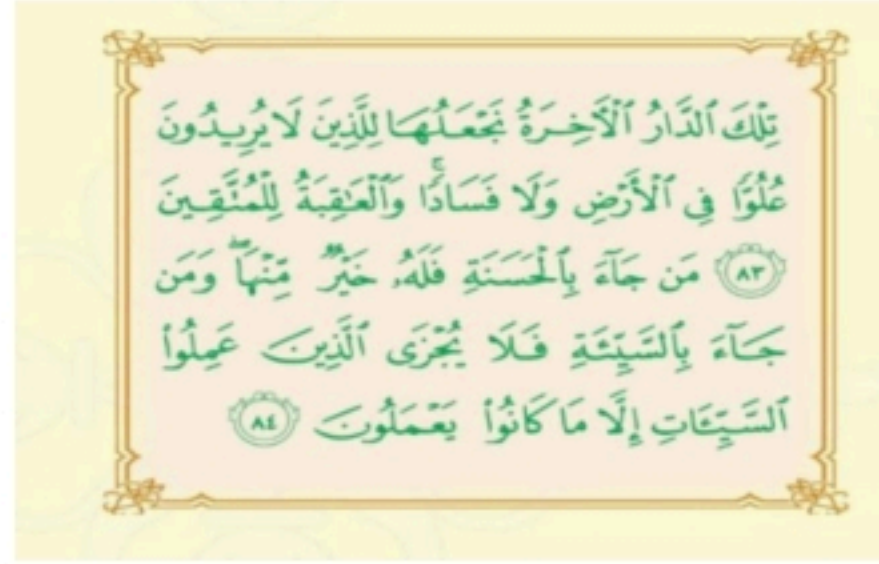 تِلْكَ ٱلدَّارُ ٱلْآخِرَةُ نَجْعَلُهَا لِلَّذِينَ لَا يُرِيدُونَ
عُلُوًّا فِى ٱلْأَرْضِ وَلَا فَسَادًا ۚ وَٱلْعَـٰقِبَةُ لِلْمُتَّقِينَ
٨٣ مَن جَآءَ بِٱلْحَسَنَةِ فَلَهُۥ خَيْرٌ مِّنْهَا ۖ وَمَن
جَآءَ بِٱلسَّيِّئَةِ فَلَا يُجْزَى ٱلَّذِينَ عَمِلُوا۟
ٱلسَّيِّـَٔاتِ إِلَّا مَا كَانُوا۟ يَعْمَلُونَ ٨٤